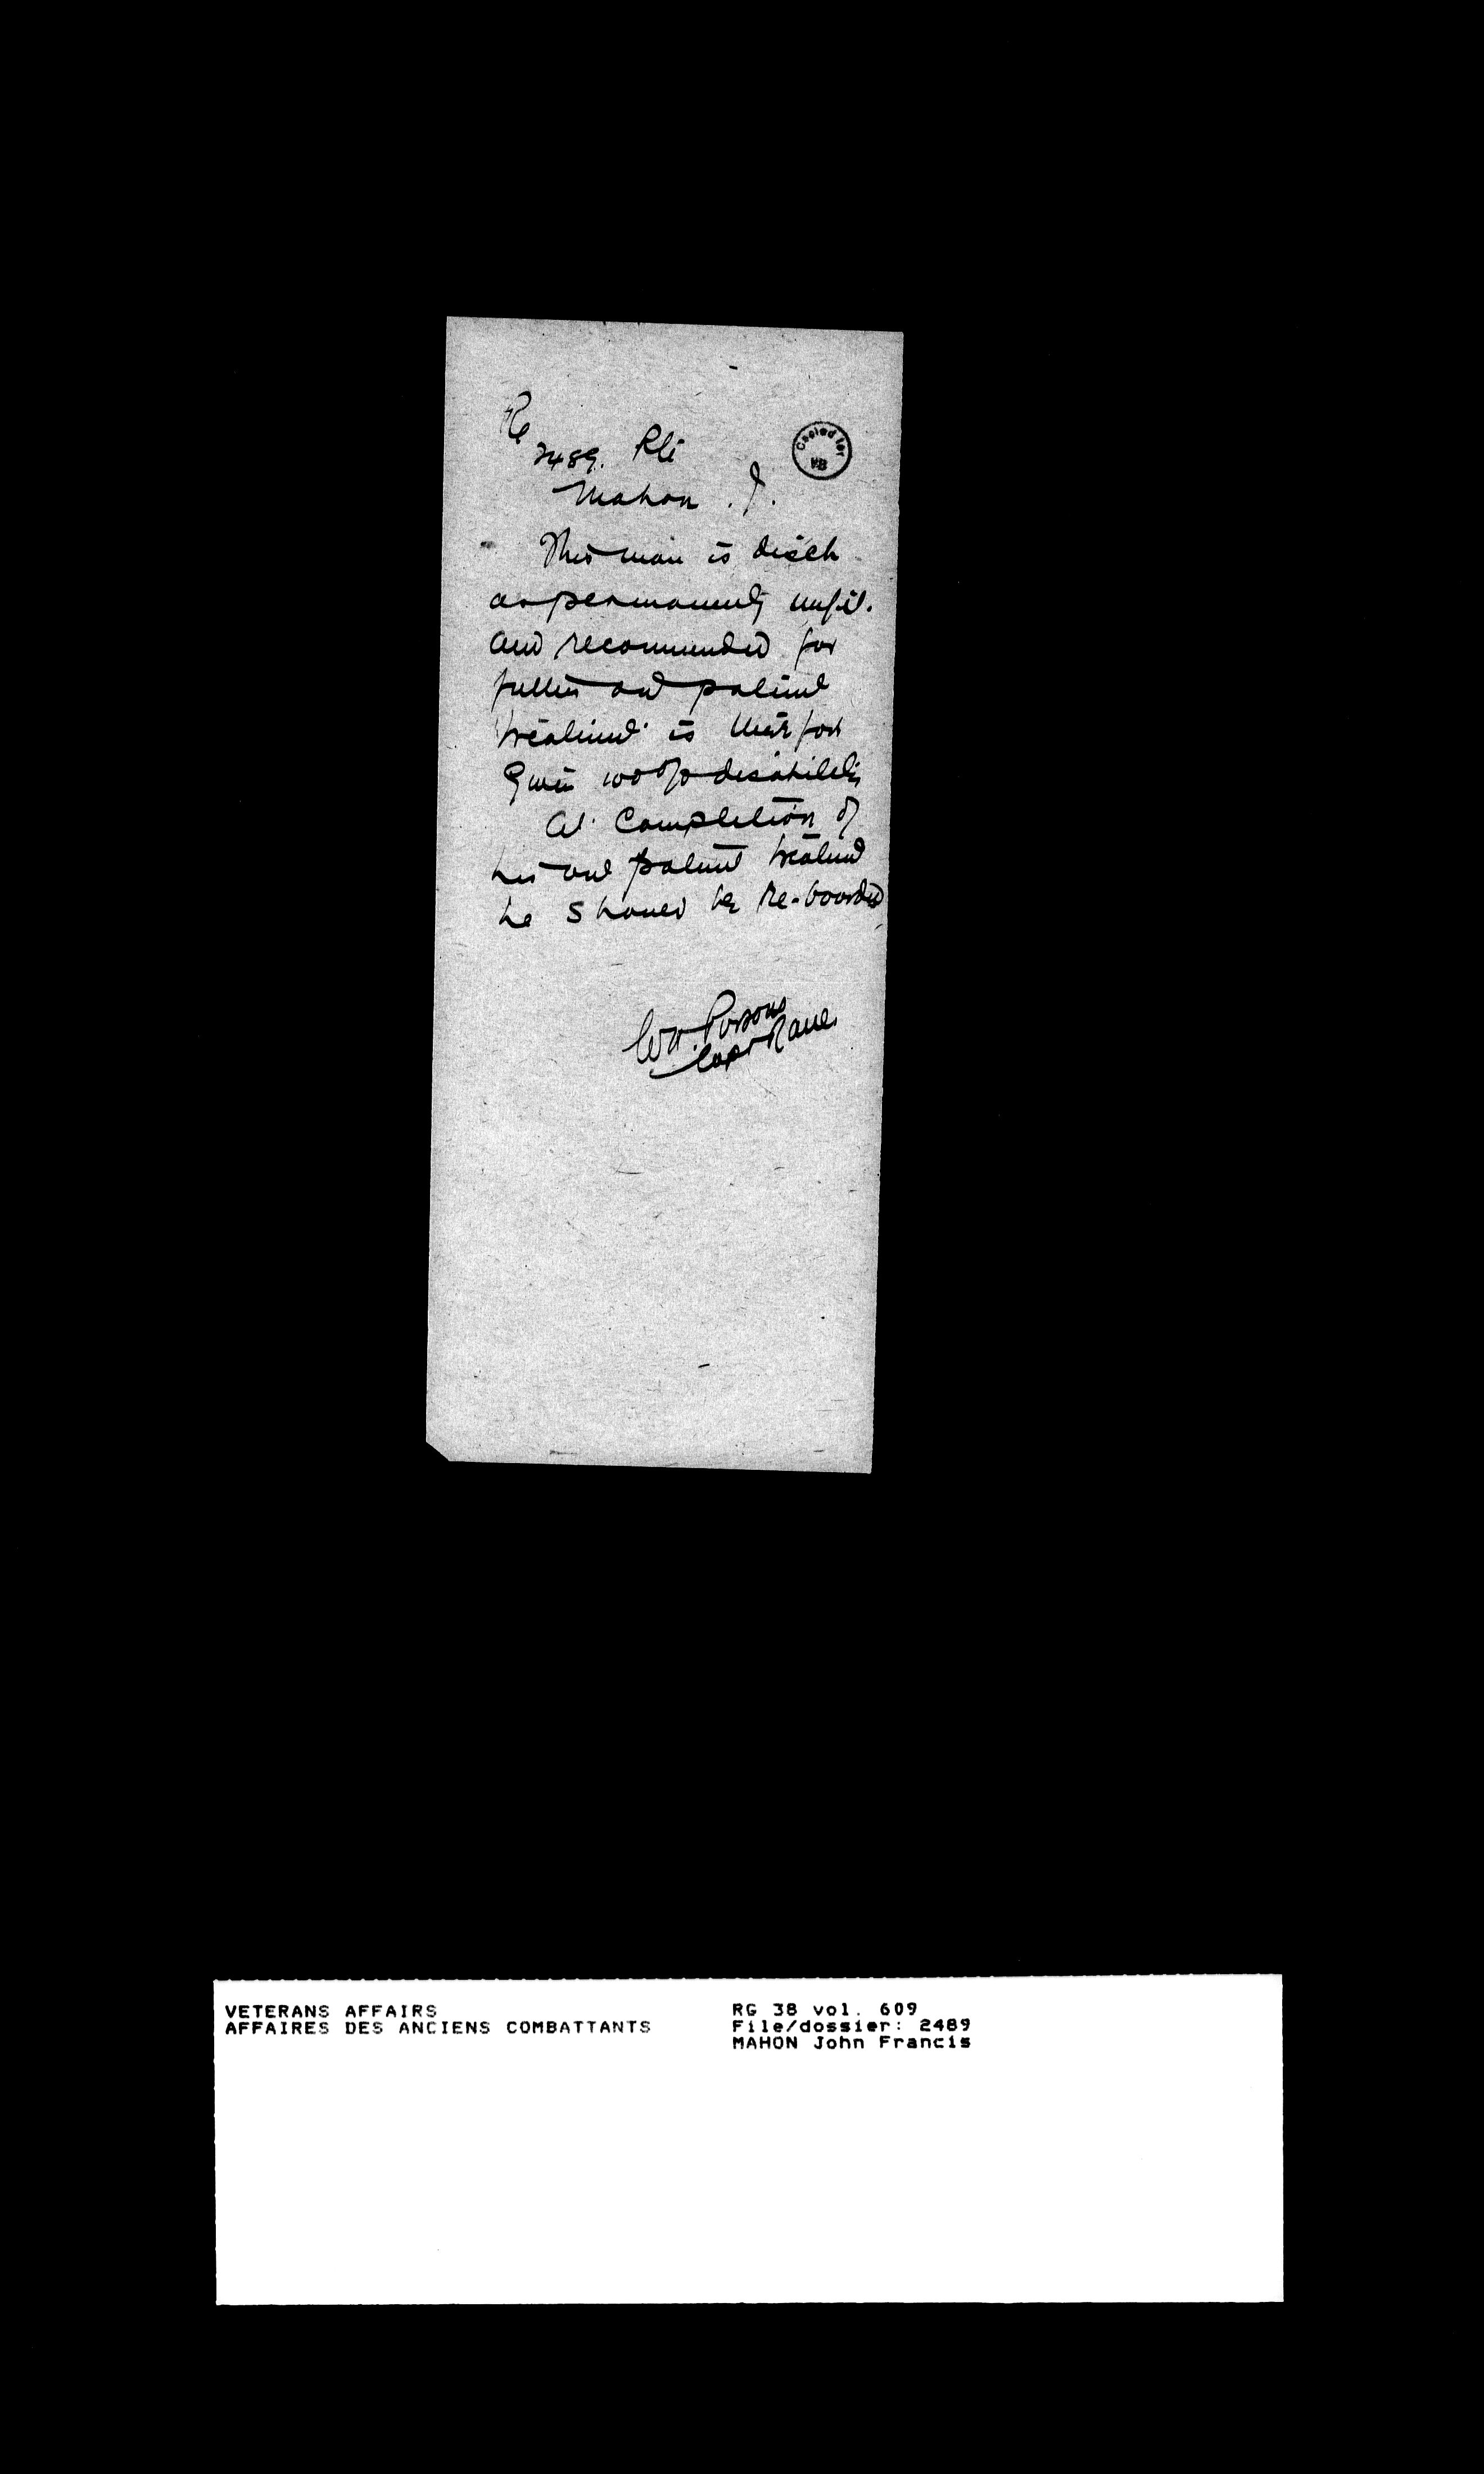 Re
2489. Pte
Mahon . J.
Copied for
VB
This man is disch
as permanently unfit.
and recommended for
further out patient
treatment is therefore
given 100% disability
At Completion of
his out patient treatment
he should be Re-boarded
Parsons
Capt
VETERANS AFFAIRS
AFFAIRES DES ANCIENS COMBATTANTS
RG 38 vol. 609
File/dossier: 2489
MAHON John Francis